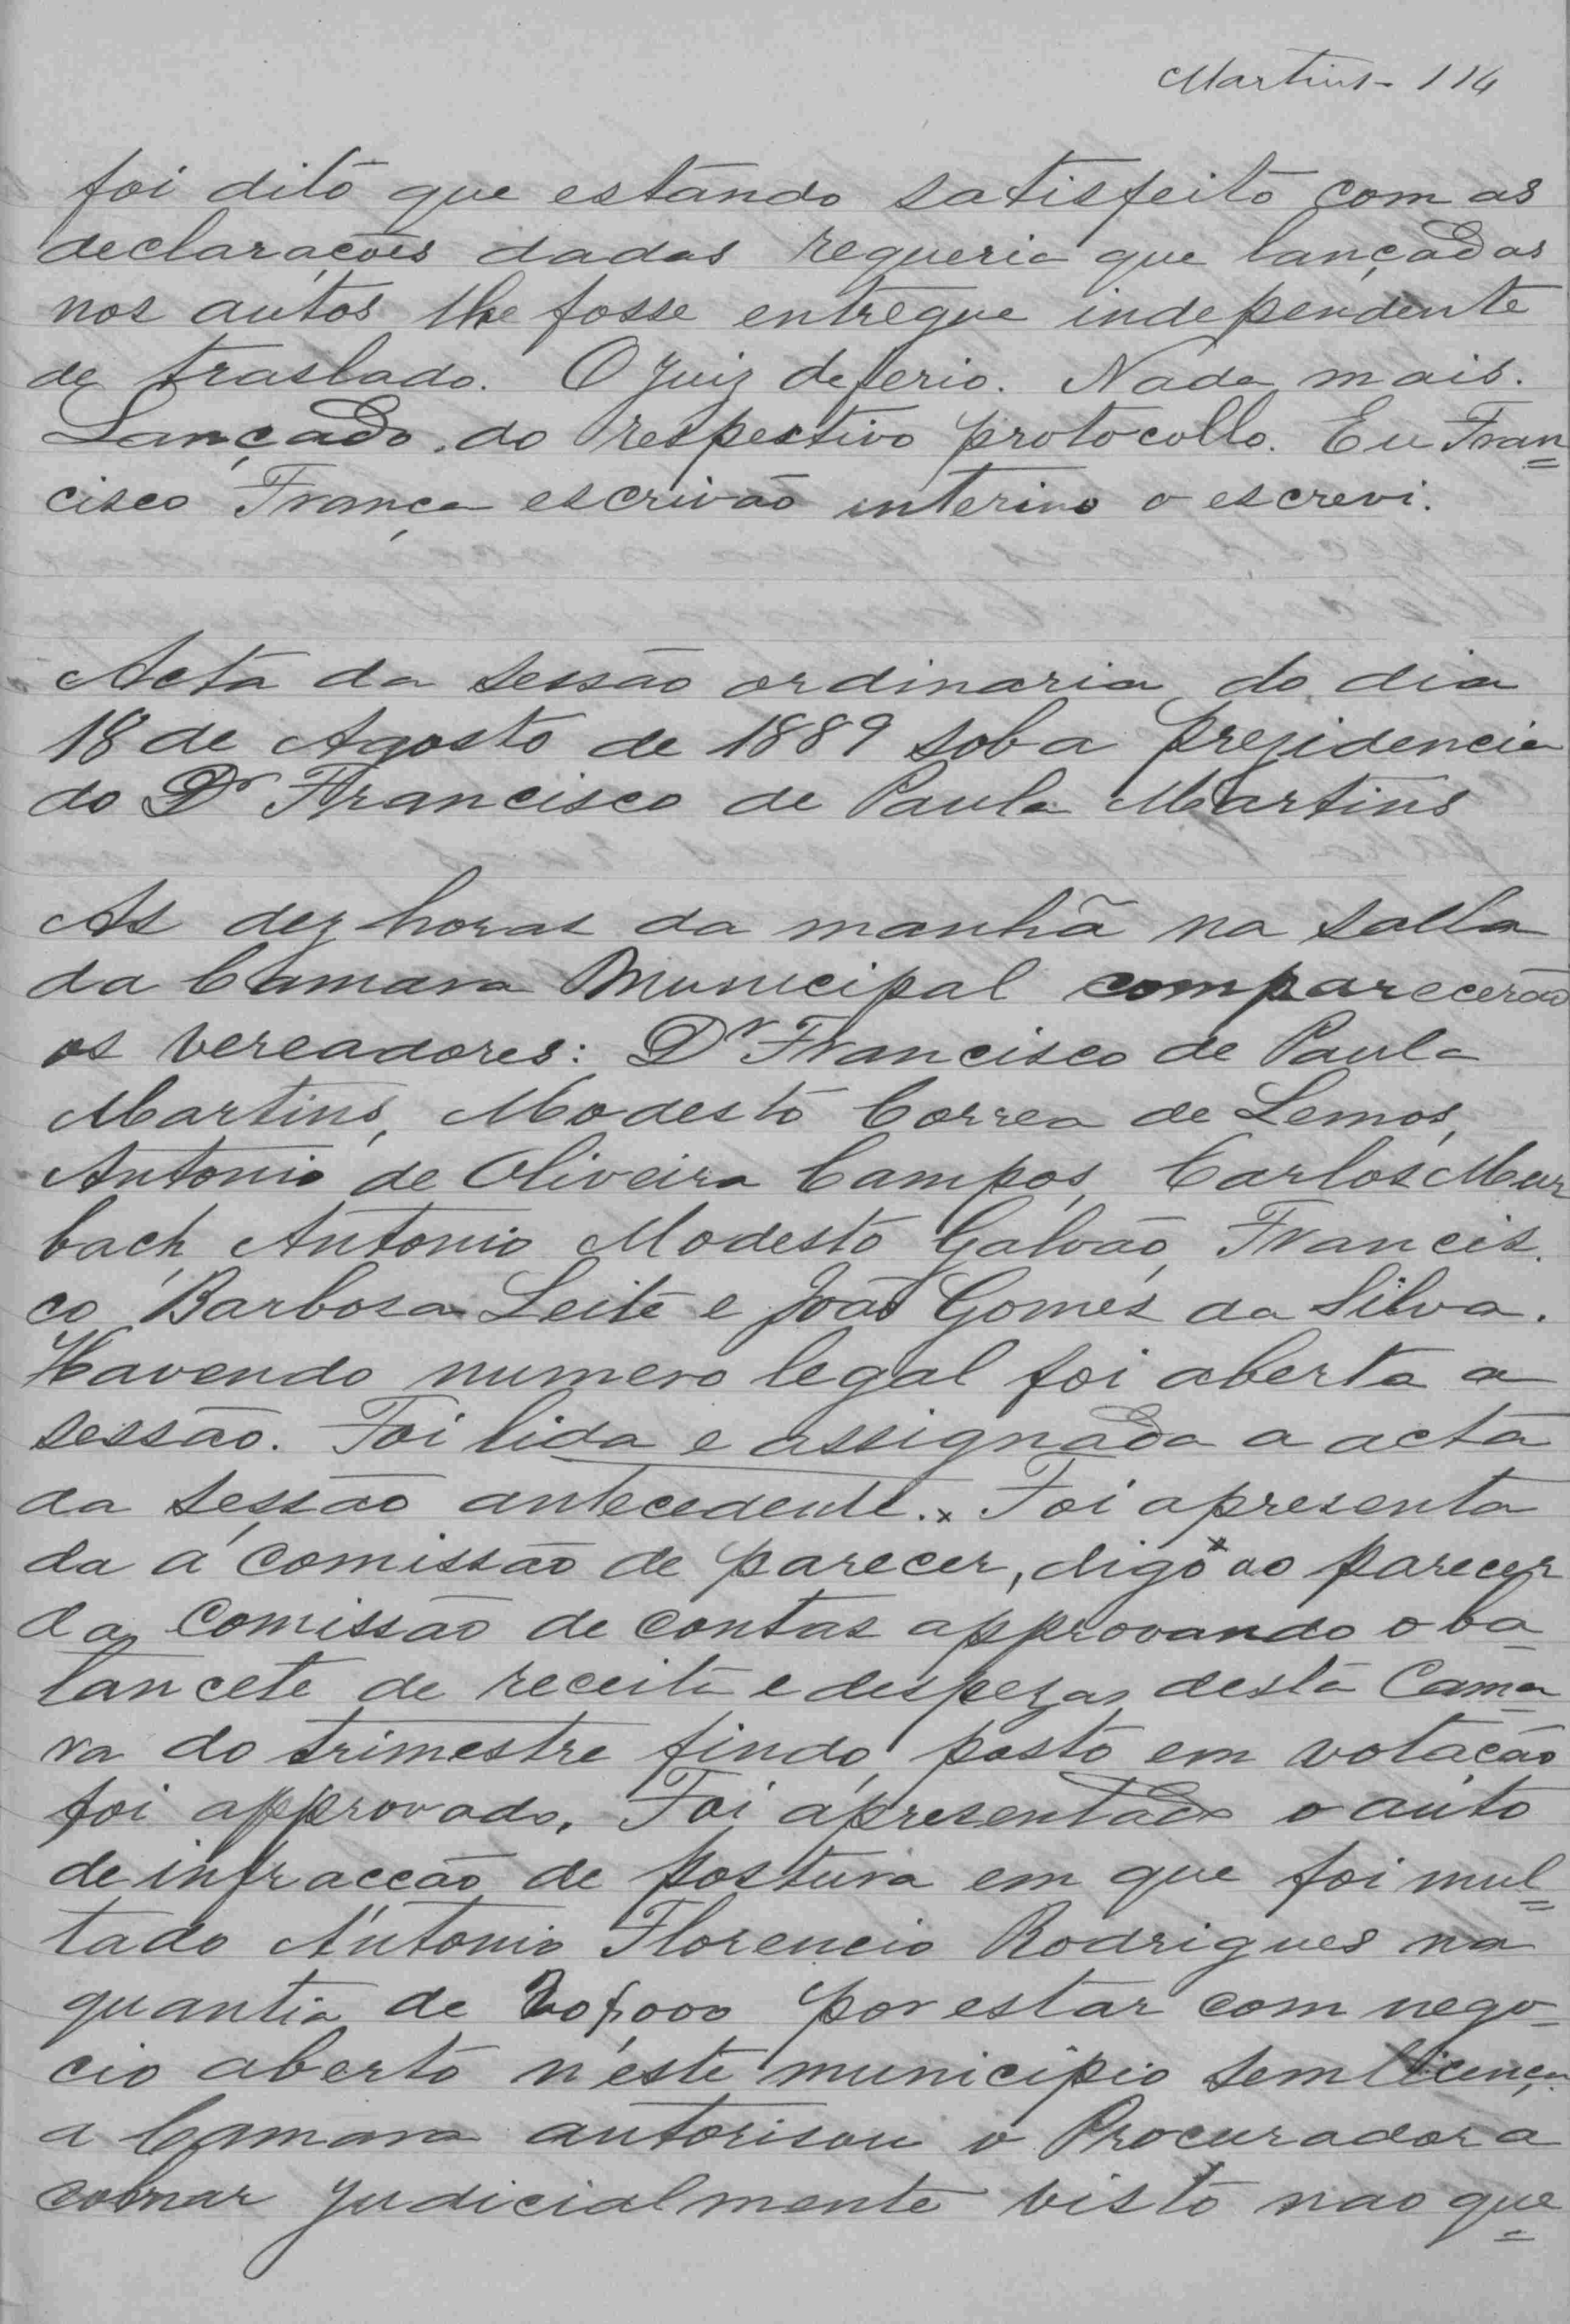 Martins - 114
foi dito que estando satisfeito com as
declarações dadas requeria que lançadas
nos autos lhe fosse entregue independente
de traslado. O Juiz deferio. Nada mais.
Lançado do respectivo protocollo. Eu Fran=
cisco França escrivão interino o escrevi.
Acta da sessão ordinaria do dia
18 de Agosto de 1889 sob a prezidencia
do Dr Francisco de Paula Martins
As dez horas da manhã na salla
da Camara Municipal comparecerão
os vereadores: Dr Francisco de Paula
Martins, Modesto Correa de Lemos,
Antonio de Oliveira Campos, Carlos Mur
bach, Antonio Modesto Galvão, Francis.
co Barbosa Leite e João Gomes da Silva.
Havendo numero legal foi aberta a
sessão. Foi lida e assignada a acta
da sessão antecedente. x Foi apresenta
da a comissão de parecer, digo x ao parecer
da Comissão de contas approvando o ba
lancete de receita e despezas desta Cama
ra do trimestre findo, posto em votação
foi approvado. Foi apresentado o auto
de infracção de postura em que foi mul=
tado Antonio Florencio Rodrigues na
quantia de 20$000 por estar com nego-
cio aberto n'este municipio sem licença
a Camara autorisou o Procurador a
cobrar judicialmente visto nao que=